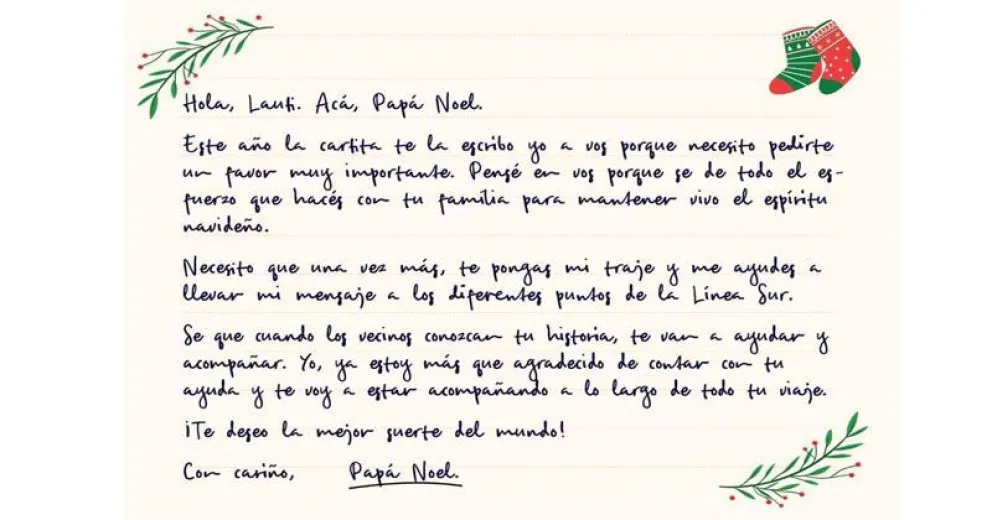 Hola, Lauti. Acá, Papá Noel.
Este año la cartita te la escribo yo a vos porque necesito pedirte
un favor muy importante. Pensé en vos porque se de todo el es-
fuerzo que hacés con tu familia para mantener vivo el espíritu
navideño.
Necesito que una vez más, te pongas mi traje y me ayudes a
llevar mi mensaje a los diferentes puntos de la Línea Sur.
Se que cuando los vecinos conozcan tu historia, te van a ayudar y
acompañar. Yo, ya estoy más que agradecido de contar con tu
ayuda y te voy a estar acompañando a lo largo de todo tu viaje.
¡Te deseo la mejor suerte del mundo!
Con cariño, Papá Noel.